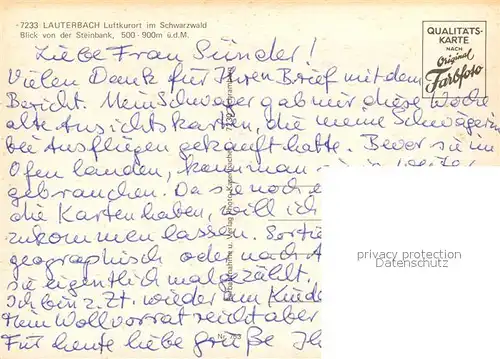 7233 LAUTERBACH Luftkurort im Schwarzwald
Blick von der Steinbank, 500 - 900m ü.d.M.
QUALITÄTS-
KARTE
NACH
Original
Farbfoto
Liebe Frau Sünder!
Vielen Dank für Ihren Brief mit dem
Bericht. Mein Schwager gab mir diese Woche
alte Ansichtskarten, die meine Schwägerin
bei Ausflügen gekauft hatte. Bevor sie im
Ofen landen, kann man sie
gebrauchen. Da sie noch
die Karten haben, will ich
zukommen lassen. Sortie
geographisch oder nach A
sie eigentlich mal gezählt.
Ich bin z. Zt. wieder im Kinde
Mein Wollvorrat reicht aber
Für heute liebe Grüße Ih
Nr. 763
privacy protection
Datenschutz